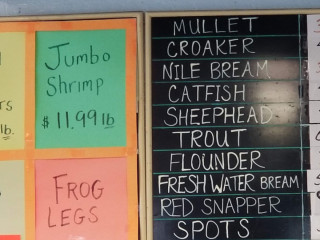 Jumbo
Shrimp
$11.99 lb
FROG
LEGS
rs
lb.
MULLET
CROAKER
NILE BREAM
CATFISH
SHEEPHEAD
TROUT
FLOUNDER
FRESH WATER BREAM
RED SNAPPER
SPOTS